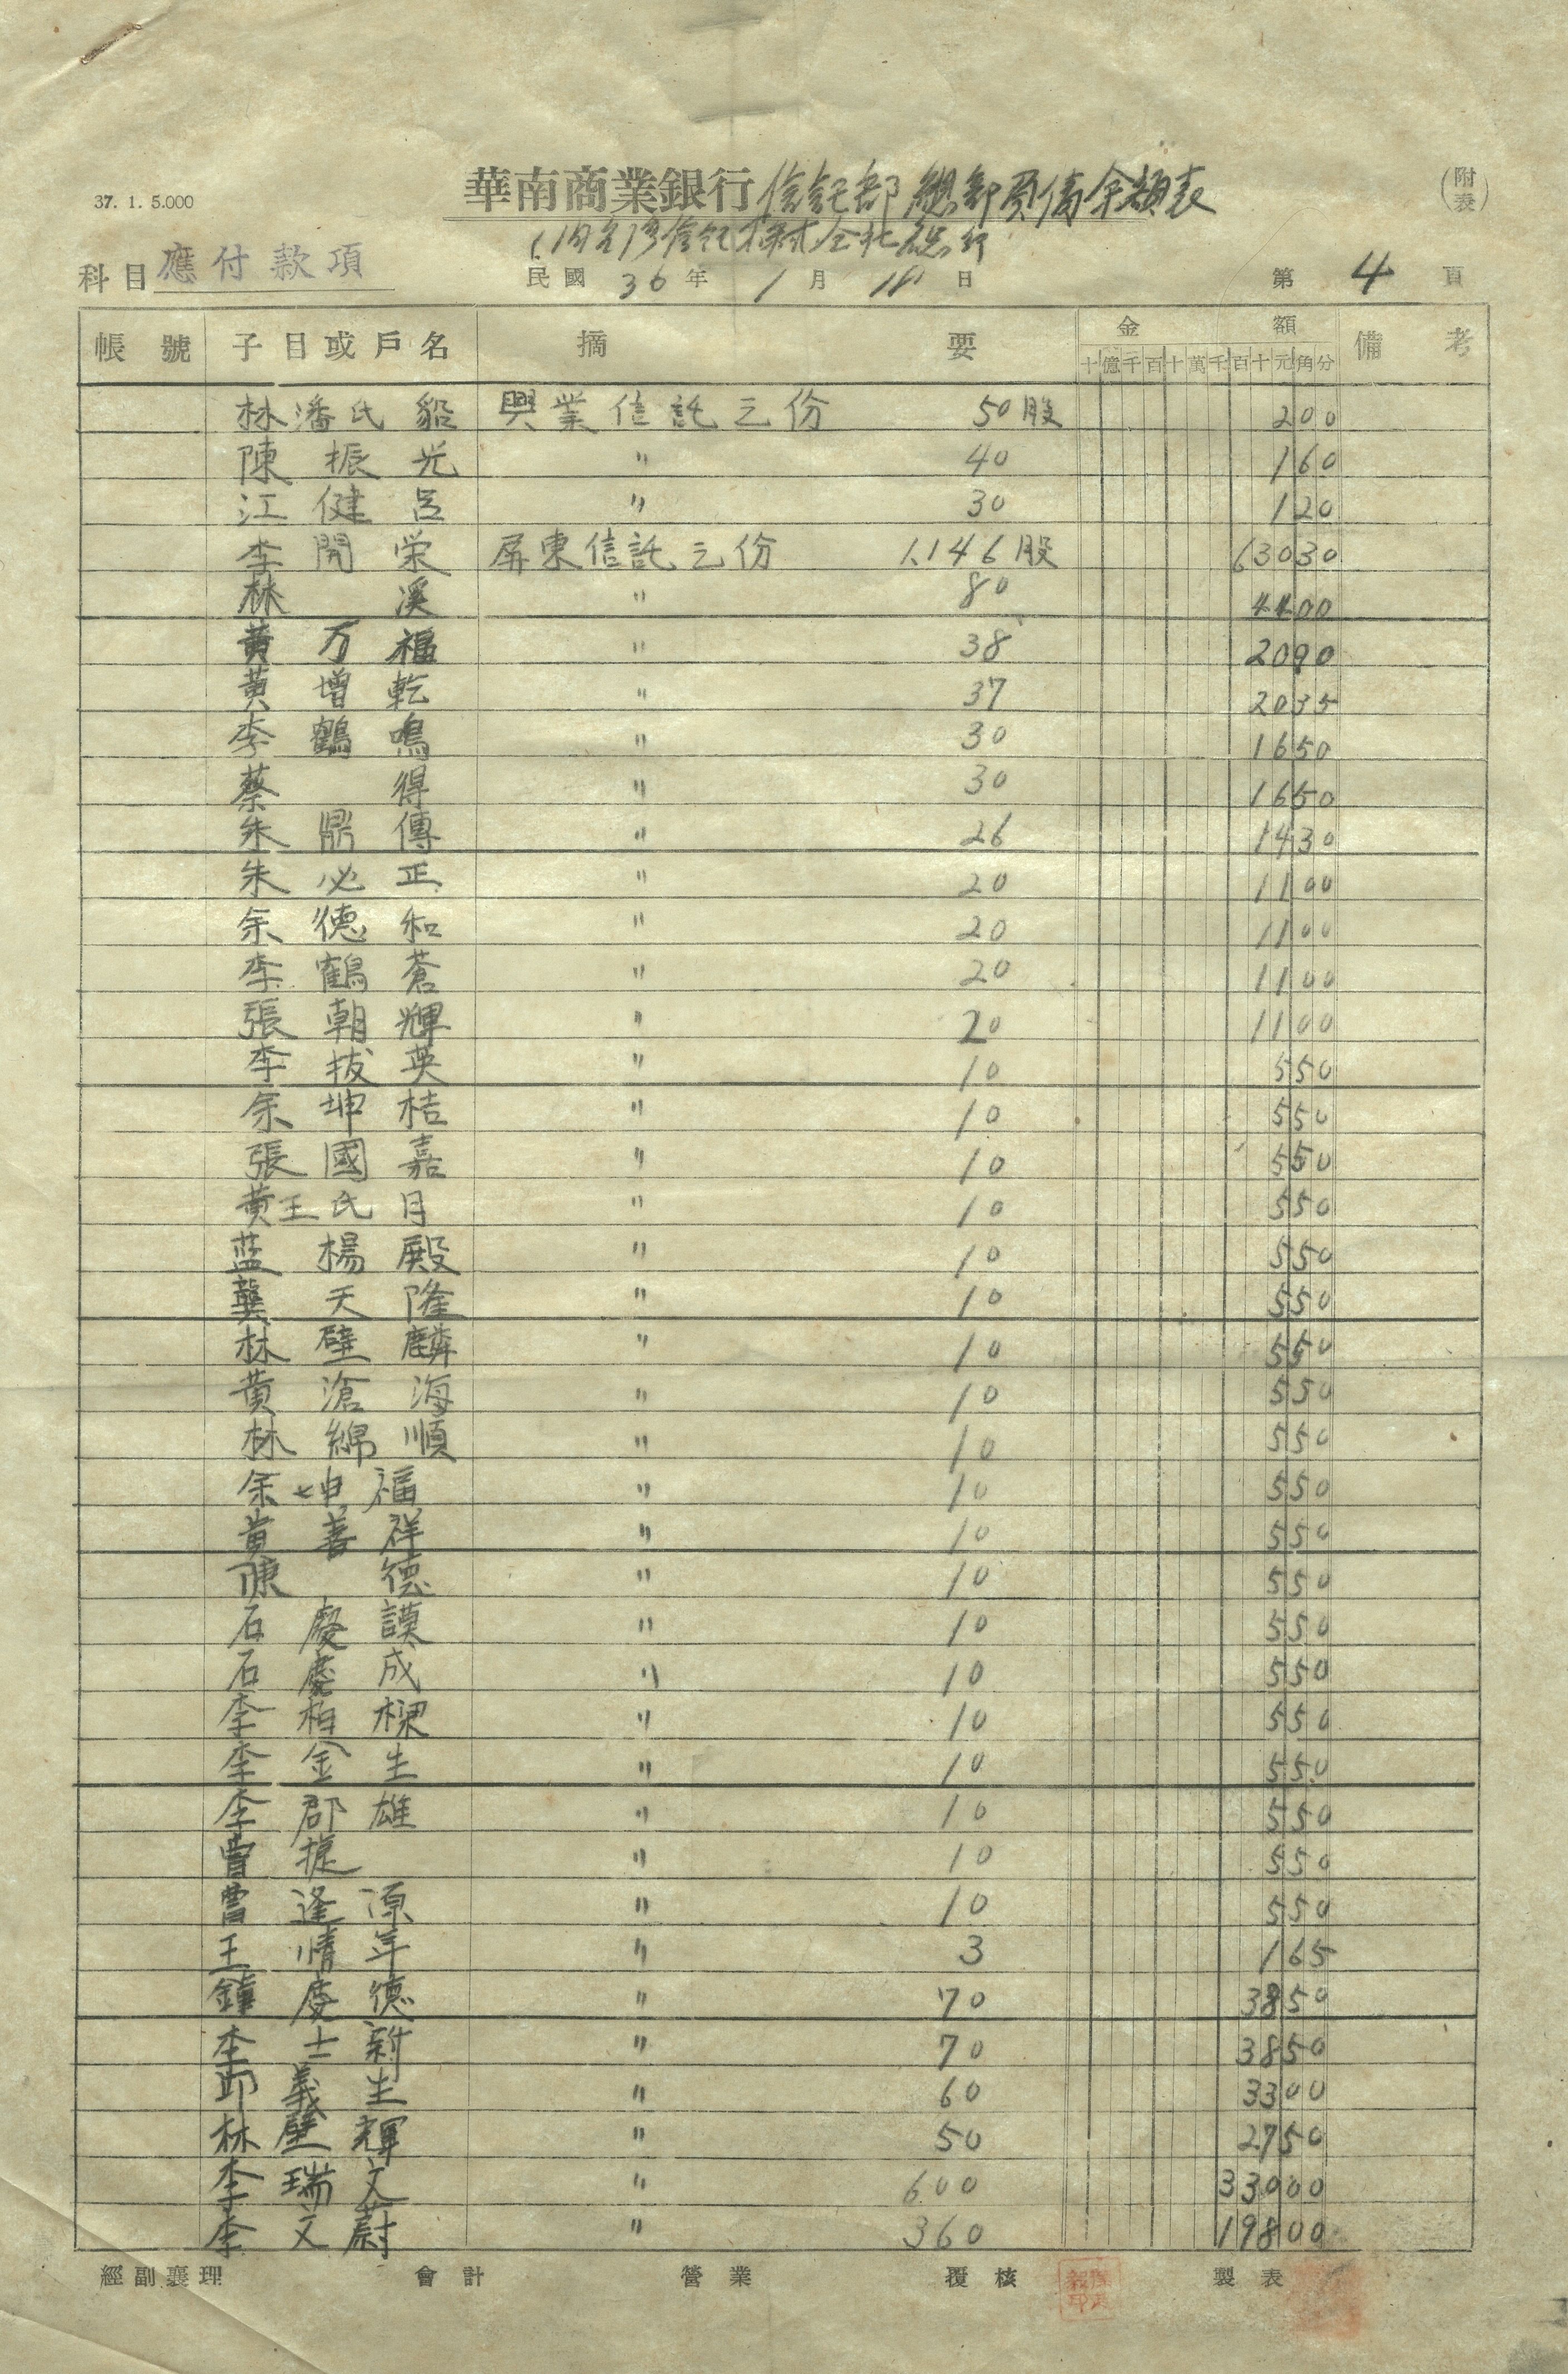 37. 1. 5.000
華南商業銀行信託部 總卸買債余額表
(附表)
科目 應付款項
民國 36 年 1 月 18 日 第 4 頁
帳號 子目或戶名 摘要 金額 備考
十億千百十萬千百十元角分
林潘氏貂 興業信託之份 50股 200
陳振光 〃 40 160
江健呂 〃 30 120
李開栄 屏東信託之份 1,146股 63030
林溪 〃 80 4400
黃万福 〃 38 2090
黃增乾 〃 37 2035
李鶴鳴 〃 30 1650
蔡得 〃 30 1650
朱鼎傳 〃 26 1430
朱必正 〃 20 1100
余德和 〃 20 1100
李鶴蒼 〃 20 1100
張朝輝 〃 20 1100
李拔英 〃 10 550
余坤桔 〃 10 550
張國嘉 〃 10 550
黃王氏月 〃 10 550
蓝楊殿 〃 10 550
龔天隆 〃 10 550
林壁麟 〃 10 550
黃滄海 〃 10 550
林綿順 〃 10 550
余坤福 〃 10 550
黃善祥 〃 10 550
陳德 〃 10 550
石慶謨 〃 10 550
石慶成 〃 10 550
李柏樑 〃 10 550
李金生 〃 10 550
李郡雄 〃 10 550
曾捷 〃 10 550
曹逢源 〃 10 550
王情年 〃 3 165
鐘慶德 〃 70 3850
李士新 〃 70 3850
邱義生 〃 60 3300
林壁輝 〃 50 2750
李瑞文 〃 600 33000
李文蔚 〃 360 19800
經副襄理 會計 營業 覆核 製表